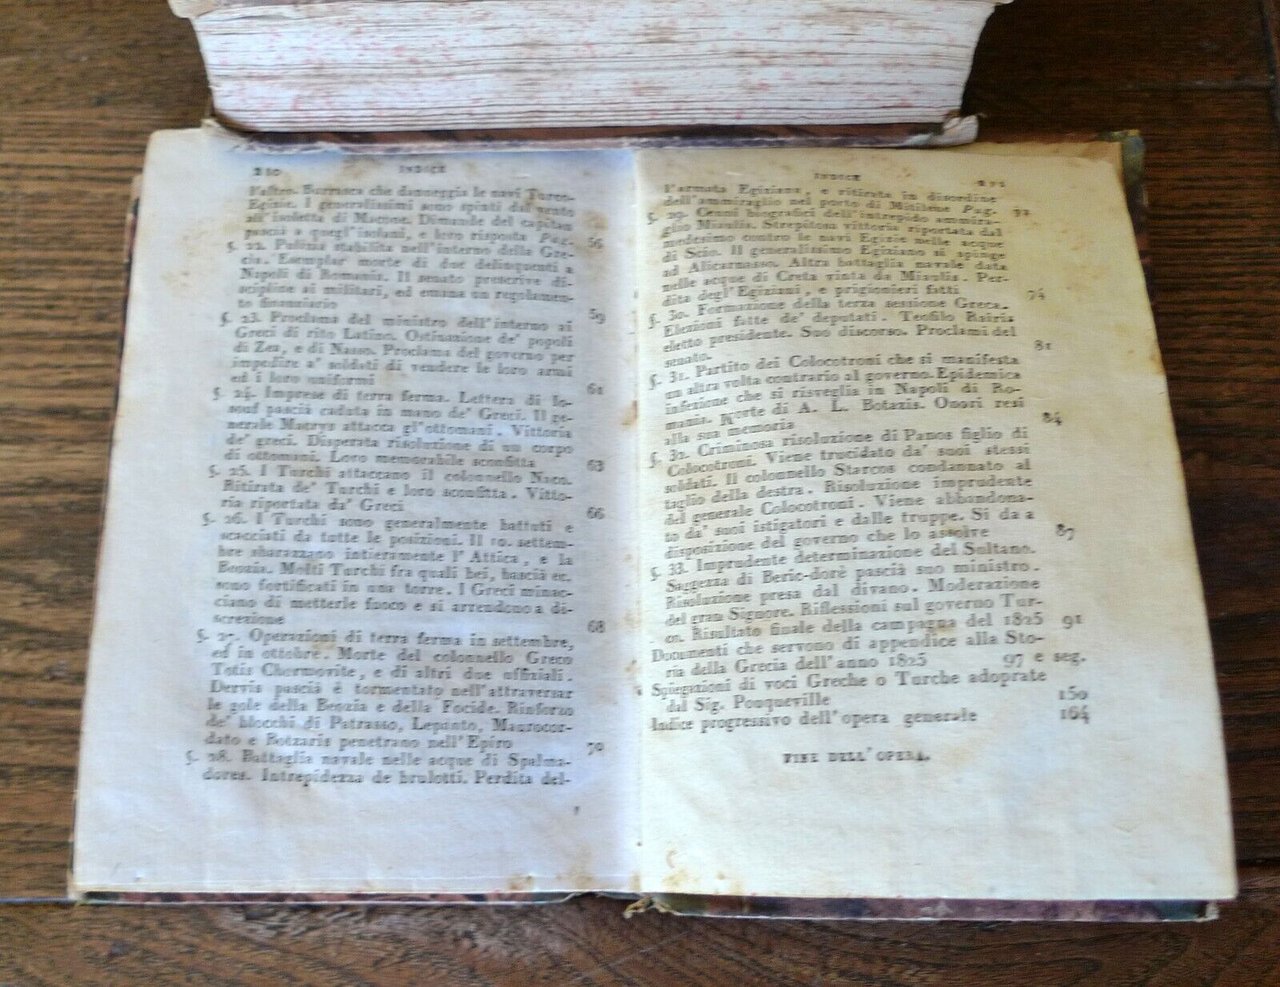 210 INDICE
l'astro. Burrasca che danneggia le navi Turco-
Egizie. I generalissimi sono spinti dal vento
all'isoletta di Dimande del capitan
pascià a quegl'isolani, e loro risposta Pag. 56
§. 22. Pulizia stabilita nell'interno della Gre-
cia. Esemplar morte di due delinquenti a
Napoli di Romania. Il senato prescrive di-
scipline ai militari, ed emana un regolamen-
to finanziario 59
§. 23. Proclama del ministro dell'interno ai
Greci di rito Latino. Ostinazione de' popoli
di Zea, e di Nasso. Proclama del governo per
impedire a' soldati di vendere le loro armi
ed i loro uniformi 61
§. 24. Imprese di terra ferma. Lettera di Io-
souf pascià caduta in mano de' Greci. Il ge-
nerale Macrys attacca gl'ottomani. Vittoria
de' greci. Disperata risoluzione di un corpo
di ottomani. Loro memorabile sconfitta 63
§. 25. I Turchi attaccano il colonnello Naco.
Ritirata de' Turchi e loro sconfitta. Vitto-
ria riportata da' Greci 66
§. 26. I Turchi sono generalmente battuti e
scacciati da tutte le posizioni. Il 10. settem-
bre sbarazzano intieramente l'Attica, e la
Beozia. Molti Turchi fra quali bei, bascià ec.
sono fortificati in una torre. I Greci minac-
ciano di metterle fuoco e si arrendono a di-
screzione 68
§. 27. Operazioni di terra ferma in settembre,
ed in ottobre. Morte del colonnello Greco
Totis Chormovite, e di altri due uffiziali.
Dervis pascià è tormentato nell'attraversar
le gole della Beozia e della Focide. Rinforzo
de' blocchi di Patrasso, Lepanto, Maurocor-
dato e Botzaris penetrano nell'Epiro 70
§. 28. Battaglia navale nelle acque di Spalma-
dores. Intrepidezza de brulotti. Perdita del-
INDICE 211
l'armata Egiziana, e ritirata in disordine
dell'ammiraglio nel porto di Mitilene Pag. 72
§. 29. Cenni biografici dell'intrepido ammira-
glio Miaulis. Strepitosa vittoria riportata dal
medesimo contro le navi Egizie nelle acque
di Scio. Il generalissimo Egiziano si spinge
ad Alicarnasso. Altra battaglia navale data
nelle acque di Creta vinta da Miaulis. Per-
dita degl'Egiziani, e prigionieri fatti 74
§. 30. Formazione della terza sessione Greca.
Elezioni fatte de' deputati. Teofilo Rairis
eletto presidente. Suo discorso. Proclami del
senato. 81
§. 31. Partito dei Colocotroni che si manifesta
un altra volta contrario al governo. Epidemica
infezione che si risveglia in Napoli di Ro-
mania. Morte di A. L. Botazis. Onori resi
alla sua memoria 84
§. 32. Criminosa risoluzione di Panos figlio di
Colocotroni. Viene trucidato da' suoi stessi
soldati. Il colonnello Starcos condannato al
taglio della destra. Risoluzione imprudente
del generale Colocotroni. Viene abbandona-
to da' suoi istigatori e dalle truppe. Si da a
disposizione del governo che lo assolve 87
§. 33. Imprudente determinazione del Sultano.
Saggezza di Beric-dorè pascià suo ministro.
Risoluzione presa dal divano. Moderazione
del gran Signore. Riflessioni sul governo Tur-
co. Risultato finale della campagna del 1825 91
Documenti che servono di appendice alla Sto-
ria della Grecia dell'anno 1825 97 e seg.
Spiegazioni di voci Greche o Turche adoprate
dal Sig. Pouqueville 150
Indice progressivo dell'opera generale 164
FINE DELL'OPERA.